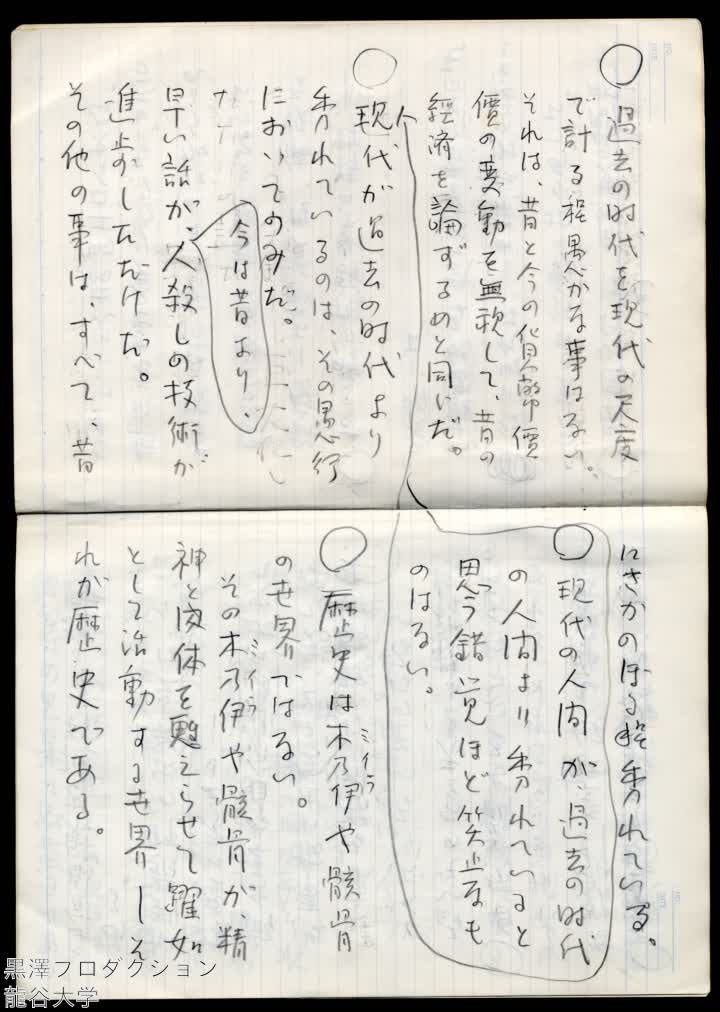 ○過去の時代を現代の尺度
で計る程愚かな事はない。
それは、昔と今の貨幣價
價の変動を無視して、昔の
経済を論ずるのと同じだ。
○現代が過去の時代より
秀れているのは、その愚行
においてのみだ。
今は昔より、
早い話が、人殺しの技術が
進歩しただけだ。
その他の事は、すべて、昔
にさかのぼる程秀れている。
○現代の人間が、過去の時代
の人間より秀れていると
思う錯覚ほど笑止なも
のはない。
○歴史は木乃伊や骸骨
ミイラ
の世界ではない。
その木乃伊や骸骨が、精
ミイラ
神と肉体を甦えらせて躍如
として活動する世界、そ
れが歴史である。
黒澤プロダクション
龍谷大学